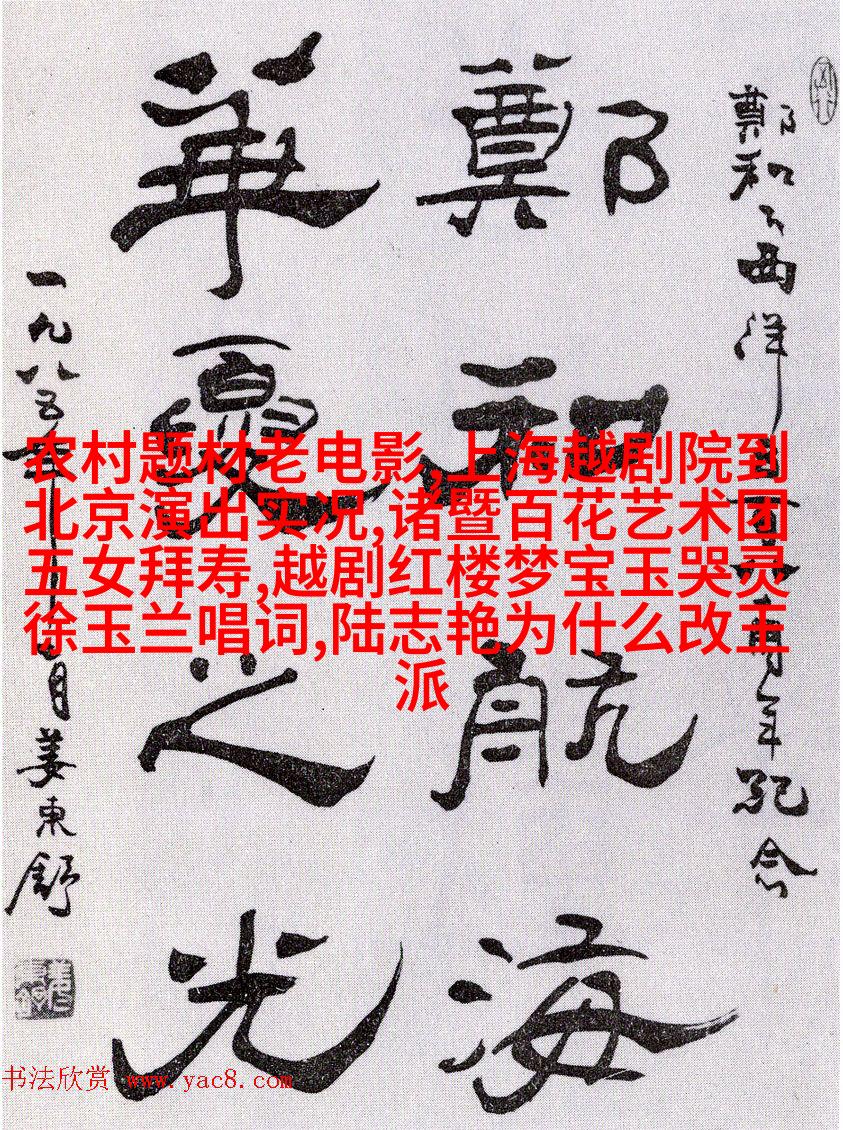 鄭和下西洋年紀念
鄭和航海
華夏之光
一九八五年月姜東舒
农村题材老电影,上海越剧院到
北京演出实况,诸暨百花艺术团
五女拜寿,越剧红楼梦宝玉哭灵
徐玉兰唱词,陆志艳为什么改王
派
书法欣赏 www.yac8.com